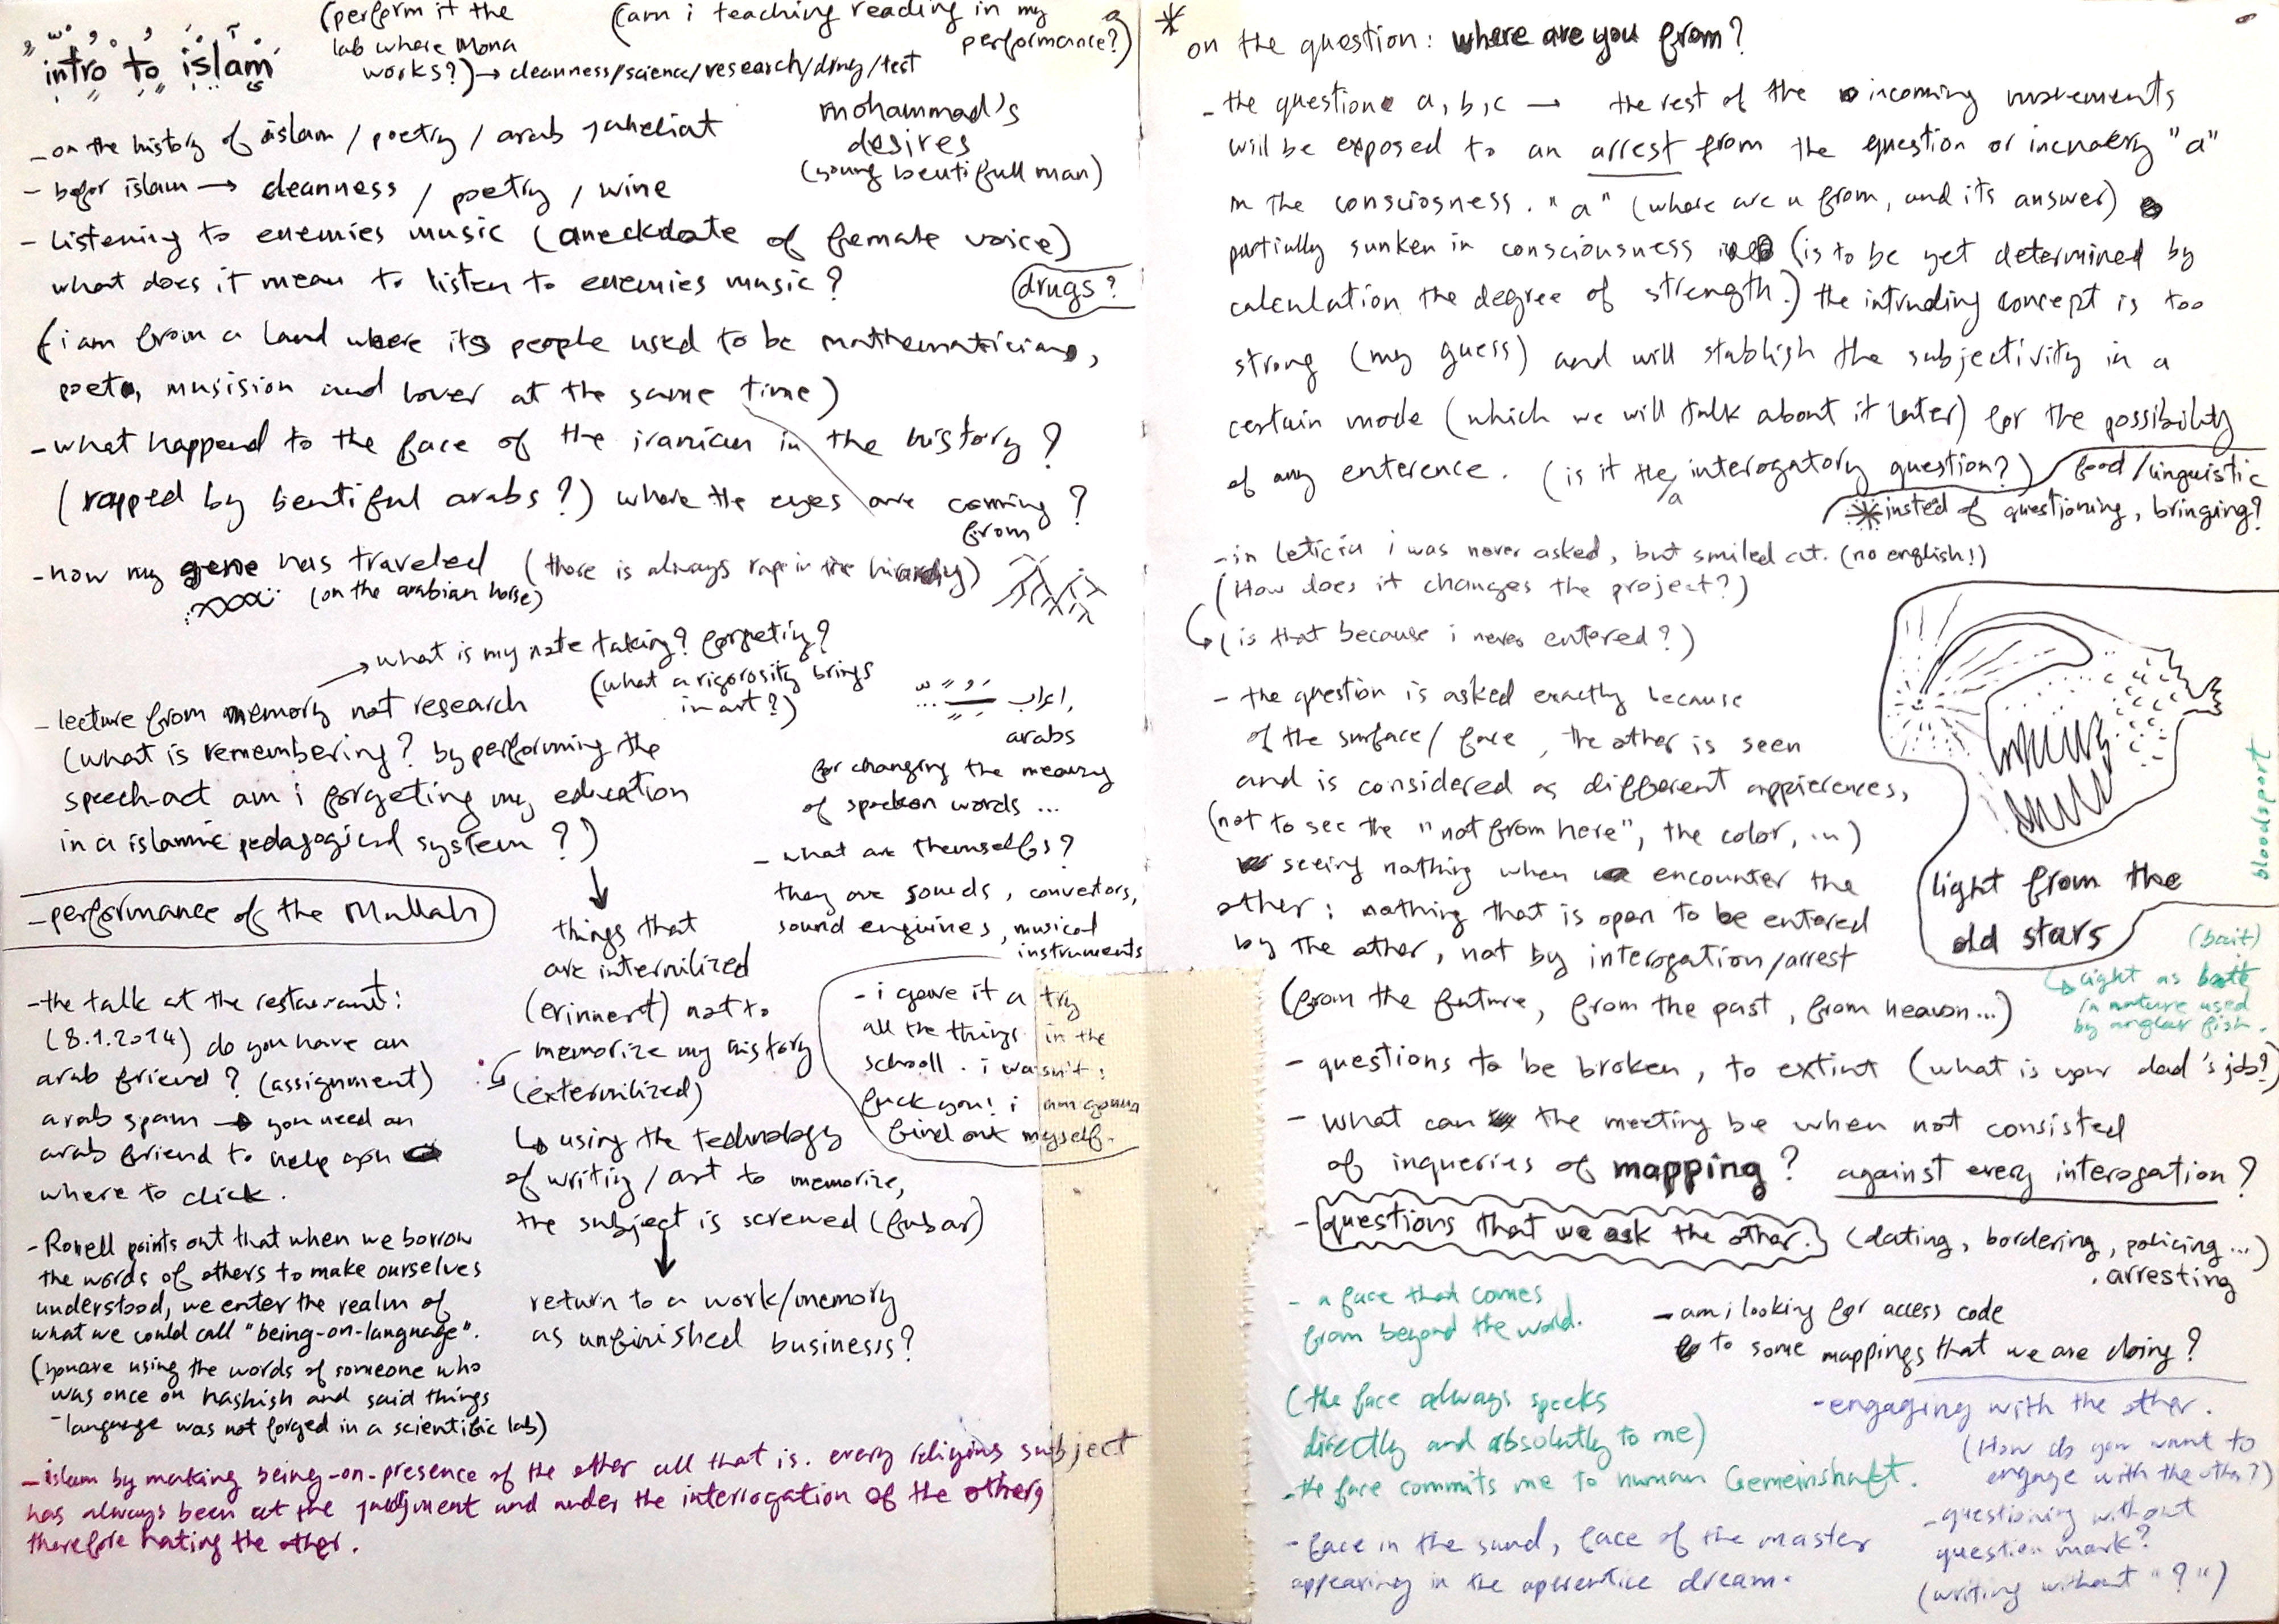 intro to islam
(perform it the
lab where Mona
works?) → cleanness/science/research/drug/test
(am i teaching reading in my
performance?)
- on the history of islam / poetry / arab jaheliat
- befor islam → cleanness / poetry / wine
mohammad's
desires
(young beutifull man)
- listening to enemies music (aneckdote of female voice)
what does it mean to listen to enemies music?
drugs?
(i am from a land where its people used to be mathematicians,
poets, musision and lover at the same time)
- what happend to the face of the iranian in the history?
(rapped by beutiful arabs?) where the eyes are coming?
from
- how my gene has traveled (there is always rape in the)
(on the arabian horse)
→ what is my note taking? forgeting?
(what a rigorosity brings
in art?)
- lecture from memory not research
(what is remembering? by performing the
speech-act am i forgeting my education
in a islamic pedagogical system?)
اعراب,
arabs
for changing the meaning
of spoken words ...
- what are themselfs?
they are sounds, convertors,
sound enguines, musical
instruments
- performance of the Mullah
things that
are internilized
(erinnert) not to
memorize my history
(externilized)
↳ using the technology
of writing / art to memorize,
the subject is screwed (fubar)
return to a work/memory
as unfinished business?
- i gave it a try
all the things in the
schooll. i wasn't:
fuck you! i am gonna
find out myself.
- the talk at the restaurant:
(8.1.2014) do you have an
arab friend? (assignment)
arab spam → you need an
arab friend to help you
where to click.
- Ronell points out that when we borrow
the words of others to make ourselves
understood, we enter the realm of
what we could call "being-on-language".
(you are using the words of someone who
was once on hashish and said things
- language was not forged in a scientific lab)
- islam by making being-on-presence of the other all that is. every religius subject
has always been at the judjment and under the interrogation of the others,
therefore hating the other.
* on the question: where are you from?
- the question a, b, c → the rest of the incoming movements
will be exposed to an arrest from the question or "a"
in the consciosness. "a" (where are u from, and its answer)
partially sunken in consciousness (is to be yet determined by
calculation the degree of strength.) the intruding concept is too
strong (my guess) and will stablish the subjectivity in a
certain mode (which we will talk about it later) for the possibility
of any enterence. (is it the/a interogatory question?)
food/linguistic
* insted of questioning, bringing?
- in leticia i was never asked, but smiled at. (no english!)
(How does it changes the project?)
↳ (is that because i never entered?)
- the question is asked exactly because
of the surface/face, the other is seen
and is considered as different appierences,
(not to see the "not from here", the color, ...)
seeing nothing when encounter the
other: nothing that is open to be entered
by the other, not by interogation/arrest
(from the future, from the past, from heaven...)
light from the
old stars
bloodsport
(bait)
↳ light as bait
in nature used
by angler fish.
- questions to be broken, to extint (what is your dad's job?)
- what can the meeting be when not consisted
of inqueries of mapping? against every interogation?
- questions that we ask the other. (dating, bordering, policing...)
. arresting
- am i looking for access code
to some mappings that we are doing?
- a face that comes
from beyond the world.
(the face always speeks
directly and absolutly to me)
- the face commits me to human Gemeinshaft.
- engaging with the other.
(How do you want to
engage with the other?)
- questioning without
question mark?
(writing without "?")
- face in the sand, face of the master
appearing in the aperentice dream.